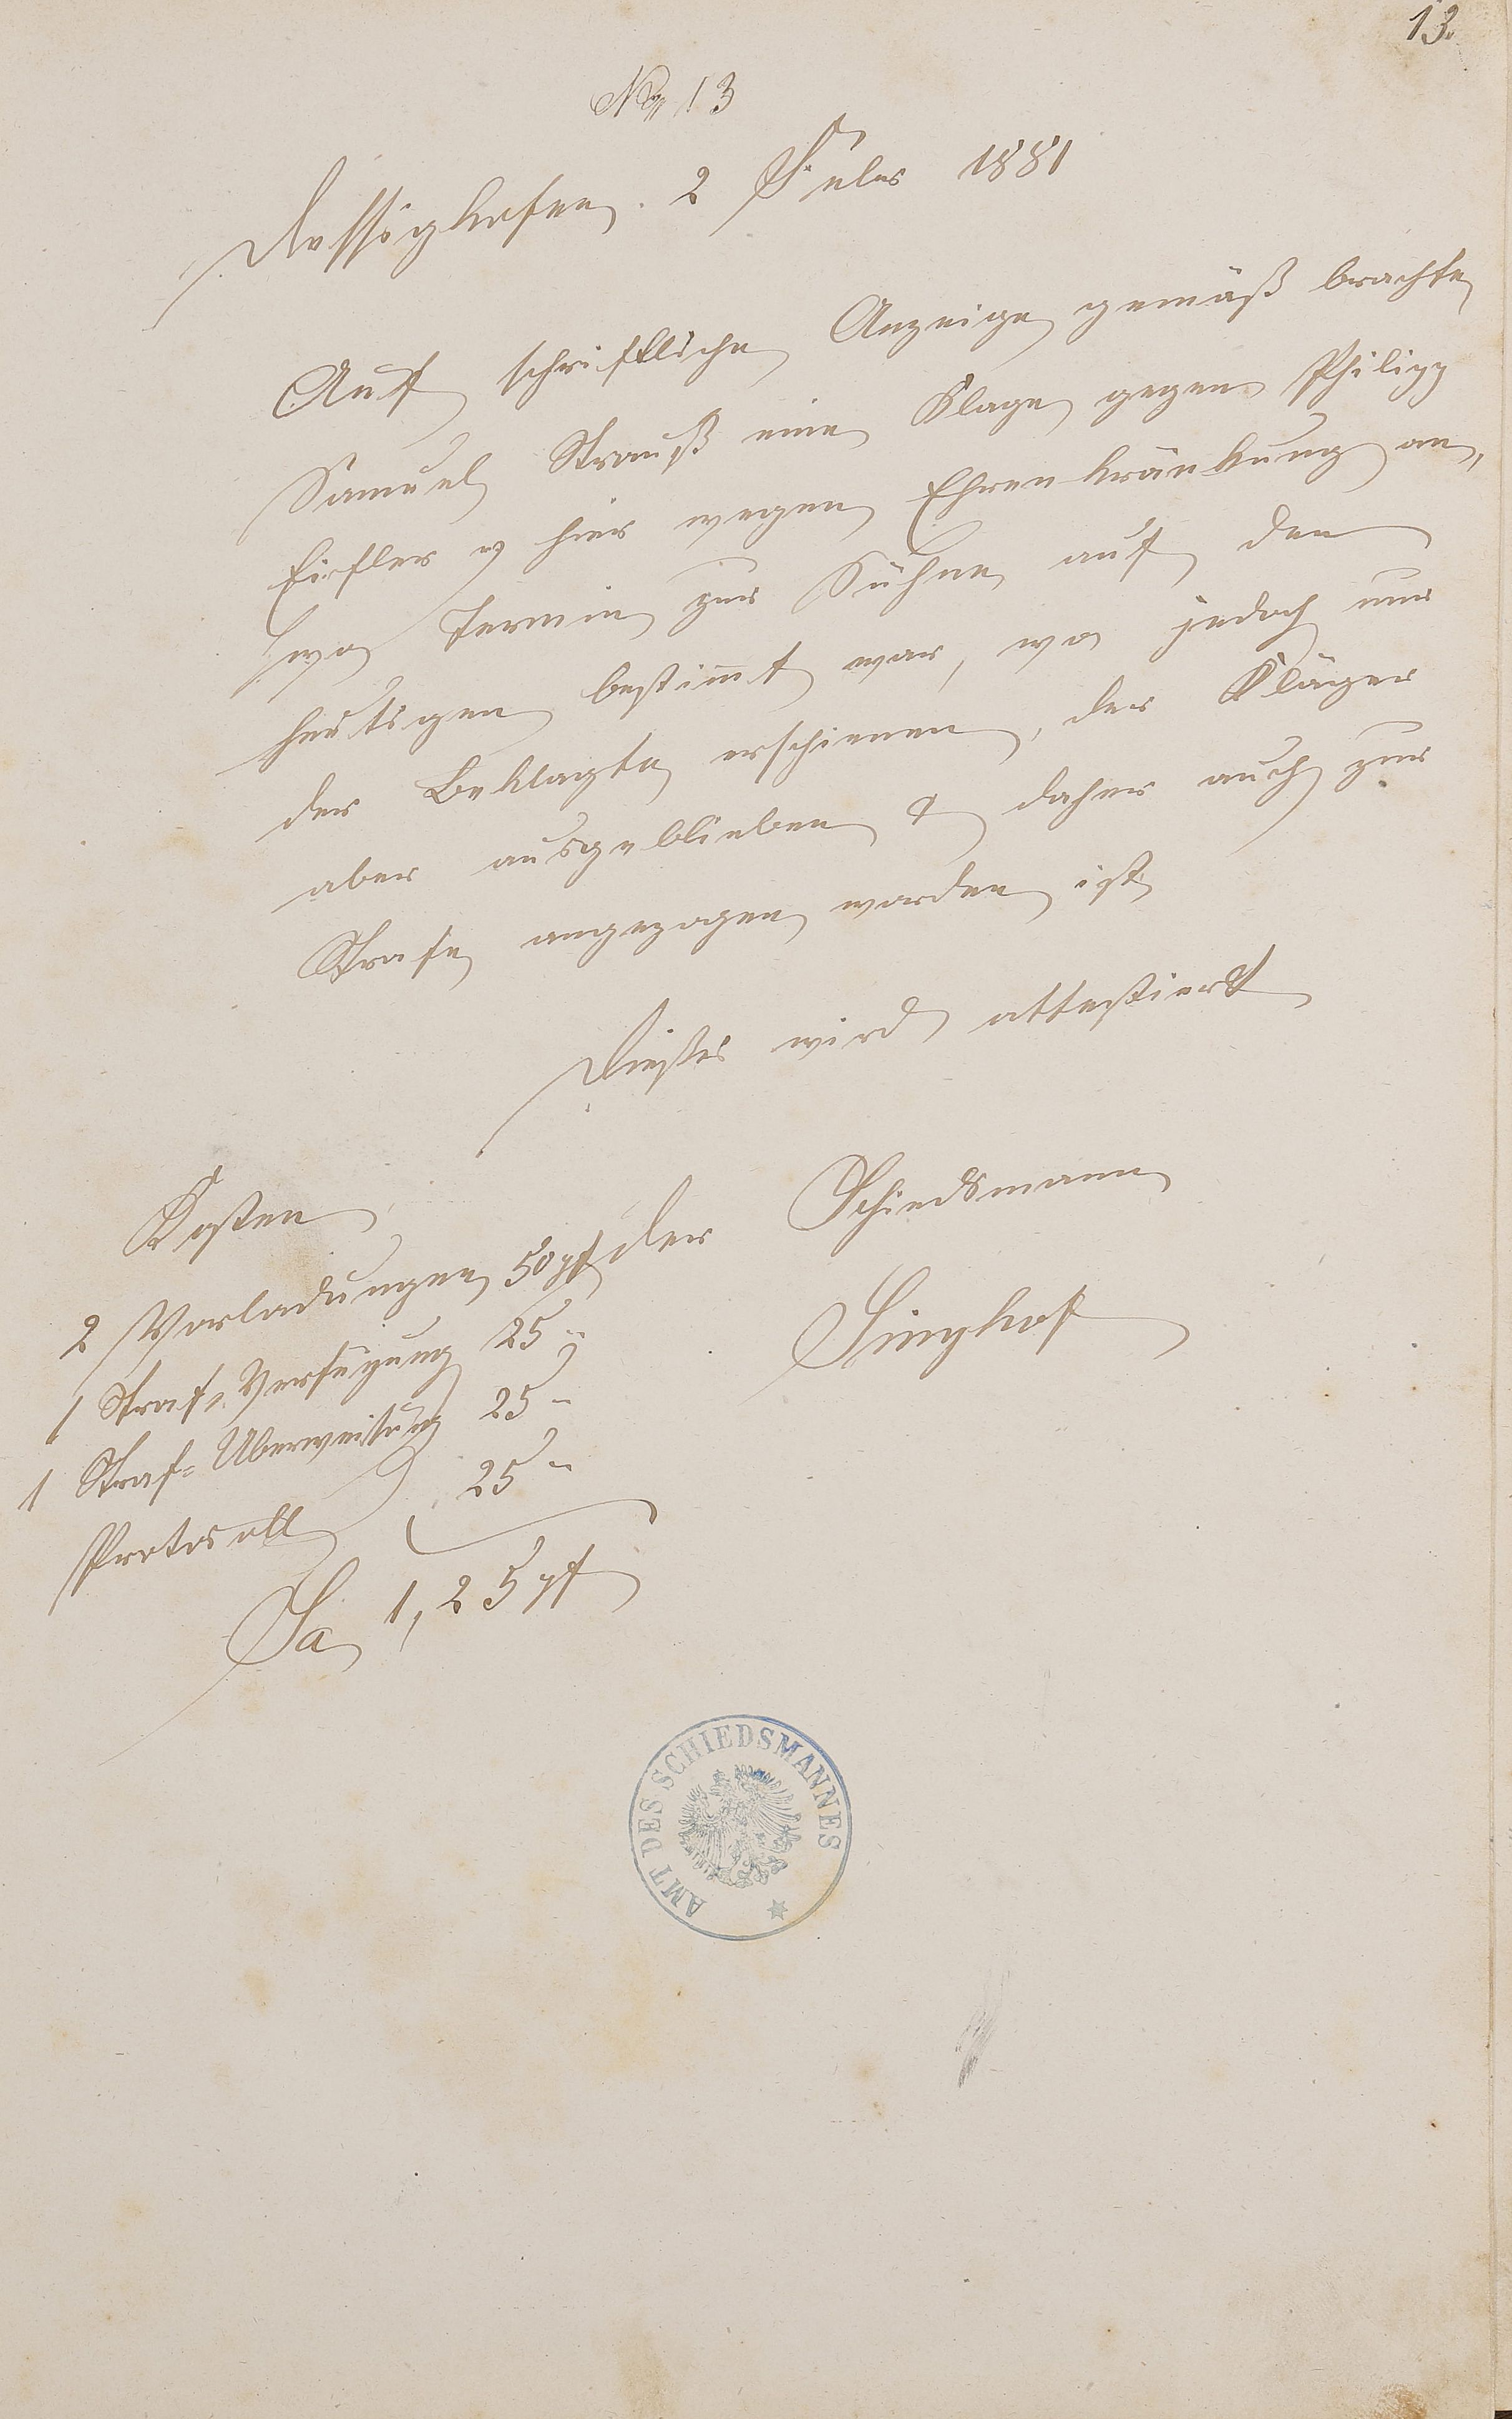 13.
No 13
Dessighofen. 2 Febr 1881
Auf schriftliche Anzeige gemäß brachte
Samuel Strauß eine Klage gegen Philipp
v hier wegen Ehrenkränkung an,
wo Termin zur Sühne auf den
heutigen bestimt war, wo jedoch nur
der Beklagte erschienen, der Kläger
aber ausgeblieben & daher auch zur
Strafe angezogen worden ist
Dieses wird attestiert
Kosten
der Schiedsmann
2 Vorladungen 50 pf
Singhof
1 Straf= Verfügung 25 "
1 Straf= Überweisung 25 "
Protocoll 25 "
Sa 1,25 pf
AMT DES SCHIEDSMANNES